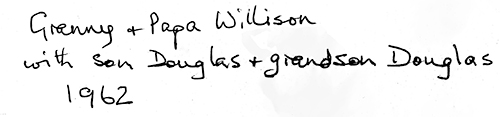 Granny + Papa Willison
with son Douglas + grandson Douglas
1962